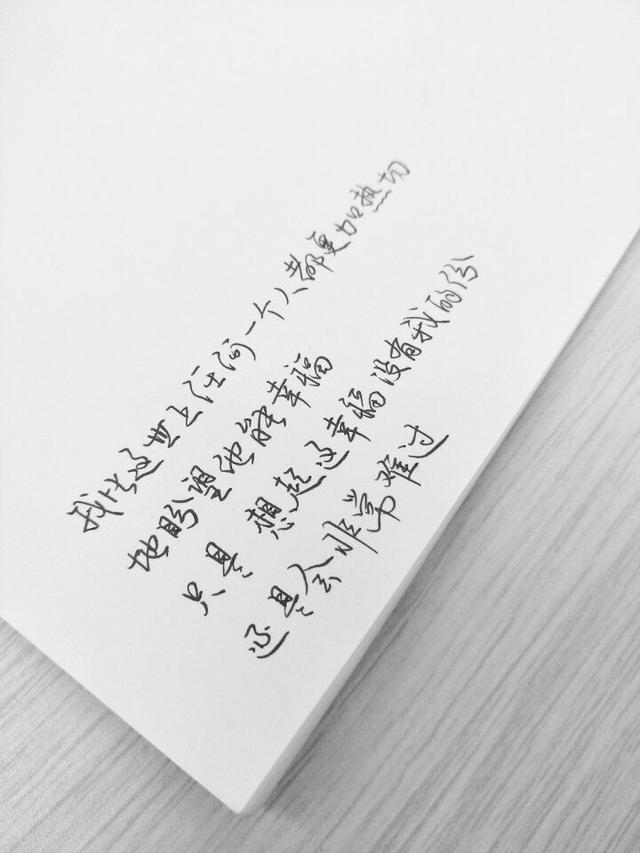 我比这世上任何一个人都更加热切
地盼望他能幸福
只是 想起这幸福没有我的份
还是会非常难过